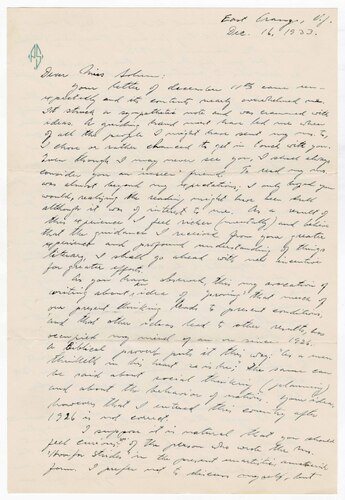 East Orange, N.J.
Dec. 16, 1933.
Dear Miss
Your letter of december 10th came
and its contents nearly overwhelmed me.
It struck a sympathetic note and was crammed with
ideas. A guiding hand must have led me when
of all the people I might have sent my ms. to,
I chose or rather chanced to get in touch with you.
Even though I may never see you, I shall always
consider you an unseen friend. To read my ms.
was almost beyond my expectations, I only hoped you
would, realizing the reading might have been dull
although it was of interest to me. As a result of
this experience I feel richer (mentally) and believe
that the guidance I received from your greater
experience and profound understanding of things
literary, I shall go ahead with new incentive
for greater effort.
As you have observed, this my avocation of
writing about, idea of proving that much of
our present thinking leads to present conditions,
and that other ideas lead to other results, has
occupied my mind off an on since 1926.
A Biblical proverb puts it this way: As a man
thinketh in his heart so is he; The same can
be said about social thinking (planning)
and about the behavior of nations. Your idea,
however that I entered this country after
1926 is not correct.
I suppose it is natural that you should
feel curious of the person who wrote the ms.
in the present
form. I prefer not to discuss myself, but